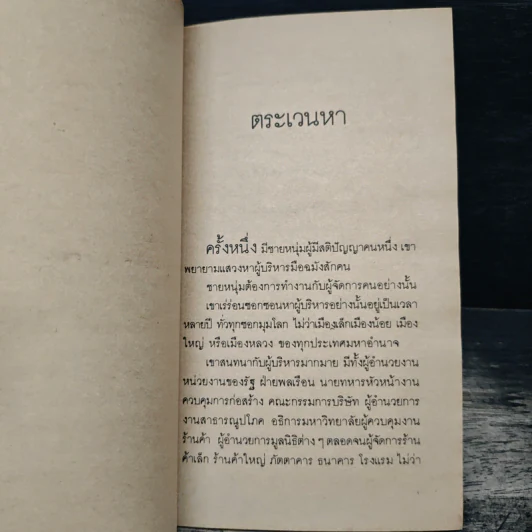 ตระเวนหา
ครั้งหนึ่ง มีชายหนุ่มผู้มีสติปัญญาคนหนึ่ง เขา
พยายามแสวงหาผู้บริหารมือฉมังสักคน
ชายหนุ่มต้องการทำงานกับผู้จัดการคนอย่างนั้น
เขาเร่ร่อนซอกซอนหาผู้บริหารอย่างนั้นอยู่เป็นเวลา
หลายปี ทั่วทุกซอกมุมโลก ไม่ว่าเมืองเล็กเมืองน้อย เมือง
ใหญ่ หรือเมืองหลวง ของทุกประเทศมหาอำนาจ
เขาสนทนากับผู้บริหารมากมาย มีทั้งผู้อำนวยงาน
หน่วยงานของรัฐ ฝ่ายพลเรือน นายทหารหัวหน้างาน
ควบคุมการก่อสร้าง คณะกรรมการบริษัท ผู้อำนวยการ
งานสาธารณูปโภค อธิการมหาวิทยาลัยผู้ควบคุมงาน
ร้านค้า ผู้อำนวยการมูลนิธิต่าง ๆ ตลอดจนผู้จัดการร้าน
ค้าเล็ก ร้านค้าใหญ่ ภัตตาคาร ธนาคาร โรงแรม ไม่ว่า